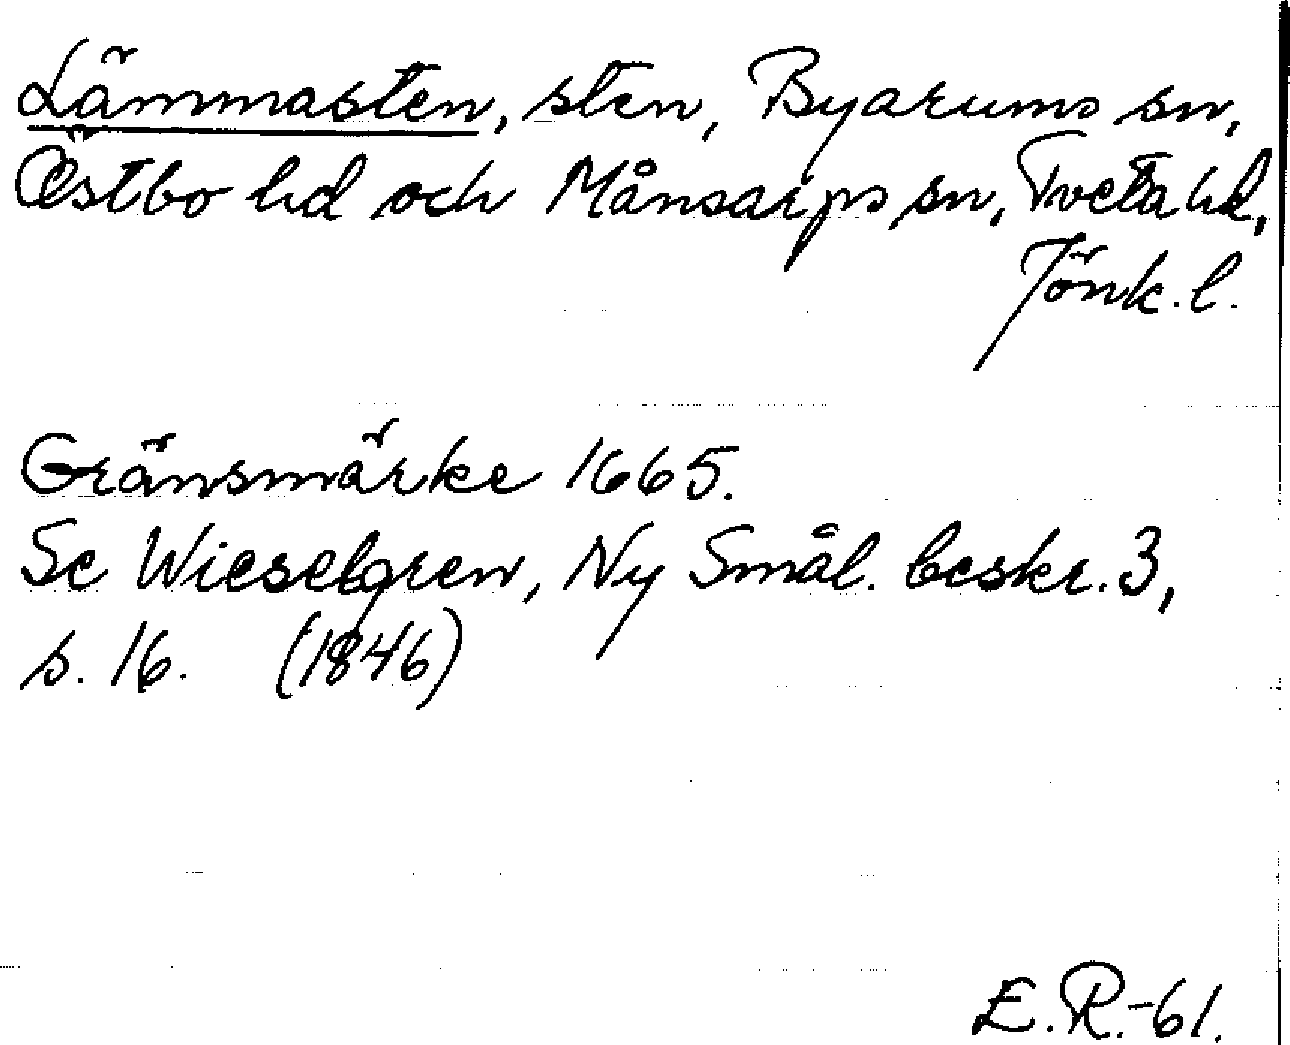 Lämmasten, sten, Byarums sn,
Östbo hd och Månsarps sn, Tveta hd,
Jönk. l.
Gränsmärke 1665.
Se Wieselgren, Ny Smål. beskr. 3,
s. 16. (1846)
E. R. -61.